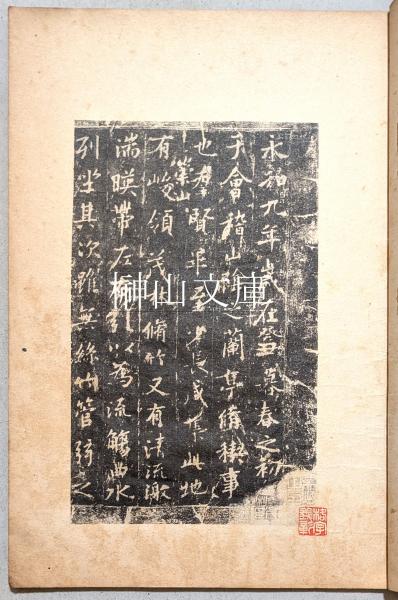 永和九年歲在癸丑暮春之初
于會稽山陰之蘭亭脩禊事
也群賢畢至少長咸集此地
崇山
有峻領茂林脩竹又有清流激
湍暎帶左右引以為流觴曲水
列坐其次雖無絲竹管弦之
榊山文庫